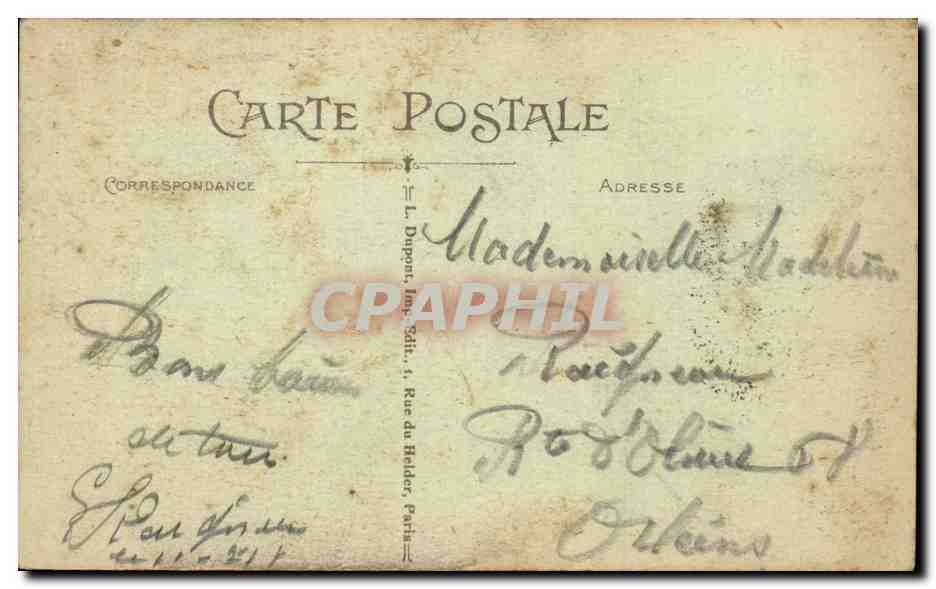 CARTE POSTALE
CORRESPONDANCE
ADRESSE
L. Dupont, Imp. Edit., 1, Rue du Helder, Paris
CPAPHIL
Bons baisers
de tous
Mademoiselle Madeleine
Rte d'Olivet 68
Orléans